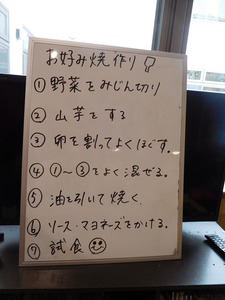 お好み焼作り
①野菜をみじん切り
②山芋をする
③卵を割ってよくほぐす。
④①〜③をよく混ぜる。
⑤油を引いて焼く。
⑥ソース・マヨネーズをかける。
⑦試食